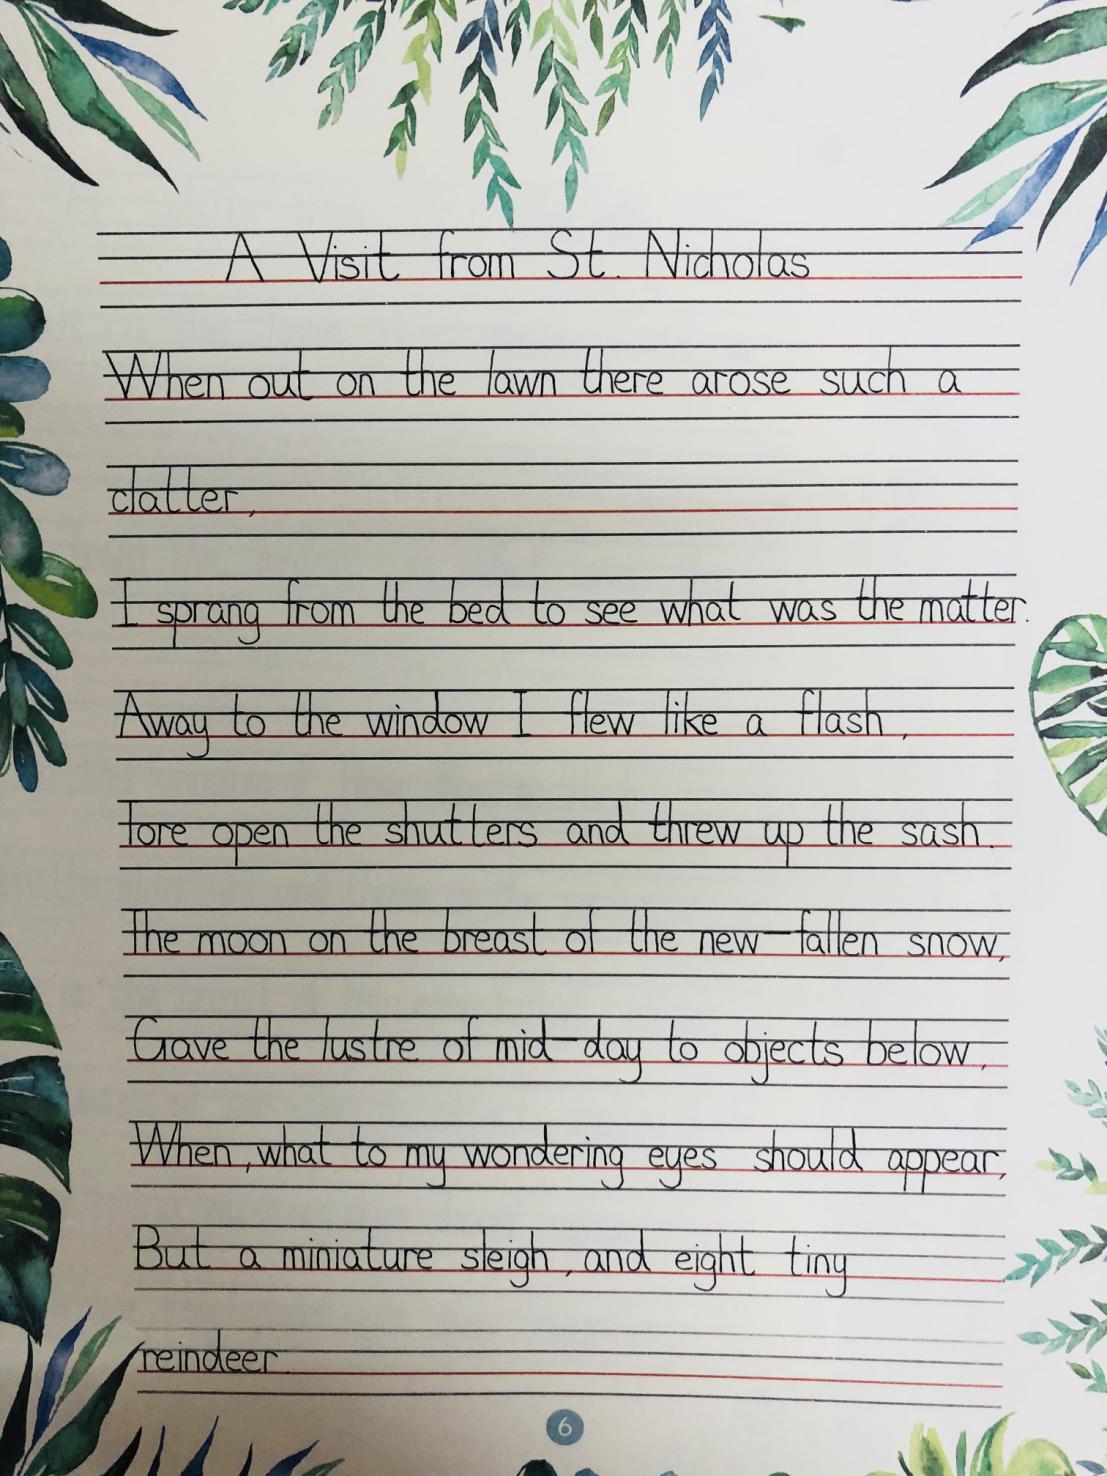 A Visit from St. Nicholas
When out on the lawn there arose such a
clatter,
I sprang from the bed to see what was the matter.
Away to the window I flew like a flash,
tore open the shutters and threw up the sash.
the moon on the breast of the new-fallen snow,
Gave the lustre of mid-day to objects below,
When, what to my wondering eyes should appear,
But a miniature sleigh, and eight tiny
reindeer.
6